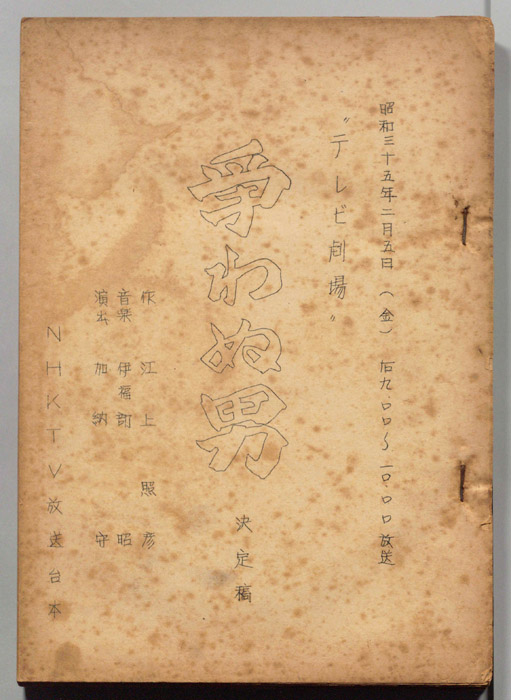 昭和三十五年二月五日（金）　后九.〇〇～一〇.〇〇放送
〝テレビ劇場〟
争わぬ男
決定稿
作　江上　照彦
音楽　伊福部　昭
演出　加納　守
NHKTV放送台本